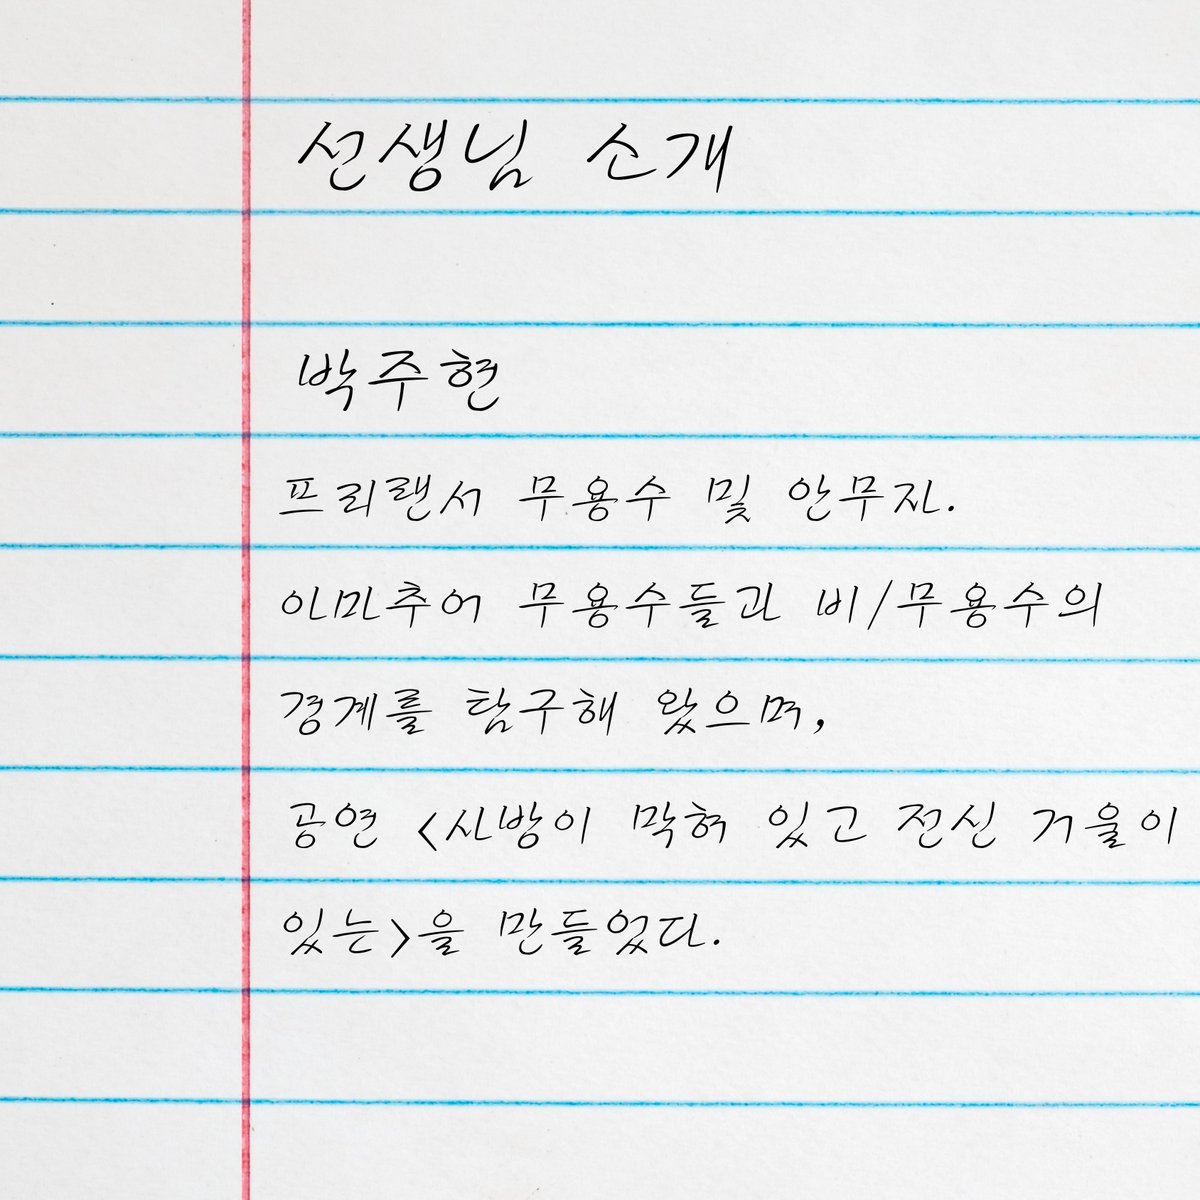 선생님 소개
박주현
프리랜서 무용수 및 안무자.
아마추어 무용수들과 비/무용수의
경계를 탐구해 왔으며,
공연 <사방이 막혀 있고 전신 거울이
있는>을 만들었다.